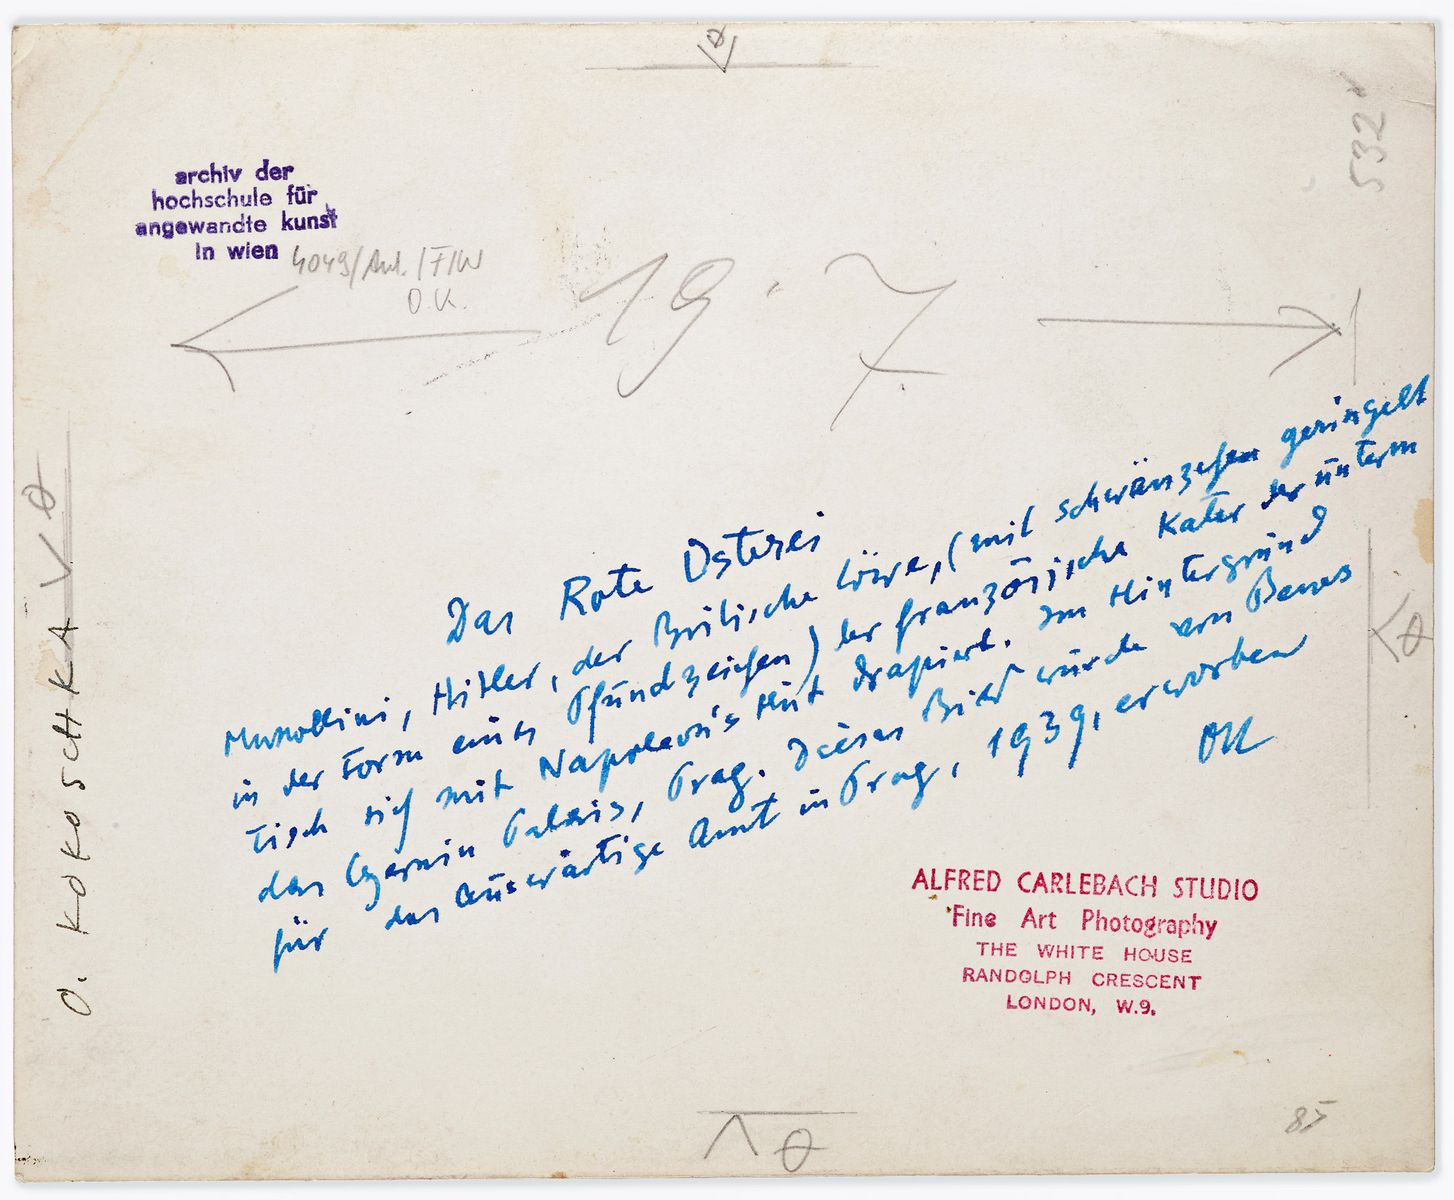 532
archiv der
hochschule für
angewandte kunst
in wien
4049/Aul./FIW
O.K.
19 - 7
O. KOKOSCHKA
Das Rote Osterei
Mussolini, Hitler, der Britische Löwe, (mit schwänzchen geringelt
in der Form eines Pfundzeichen) der französische Kater der unterm
Tisch sich mit Napoleon's Hut drapiert. Im Hintergrund
das Czernin Palais, Prag. Dieses Bild wurde von Benes
für das Auswärtige Amt in Prag, 1939, erworben
OK
ALFRED CARLEBACH STUDIO
Fine Art Photography
THE WHITE HOUSE
RANDOLPH CRESCENT
LONDON, W.9.
85